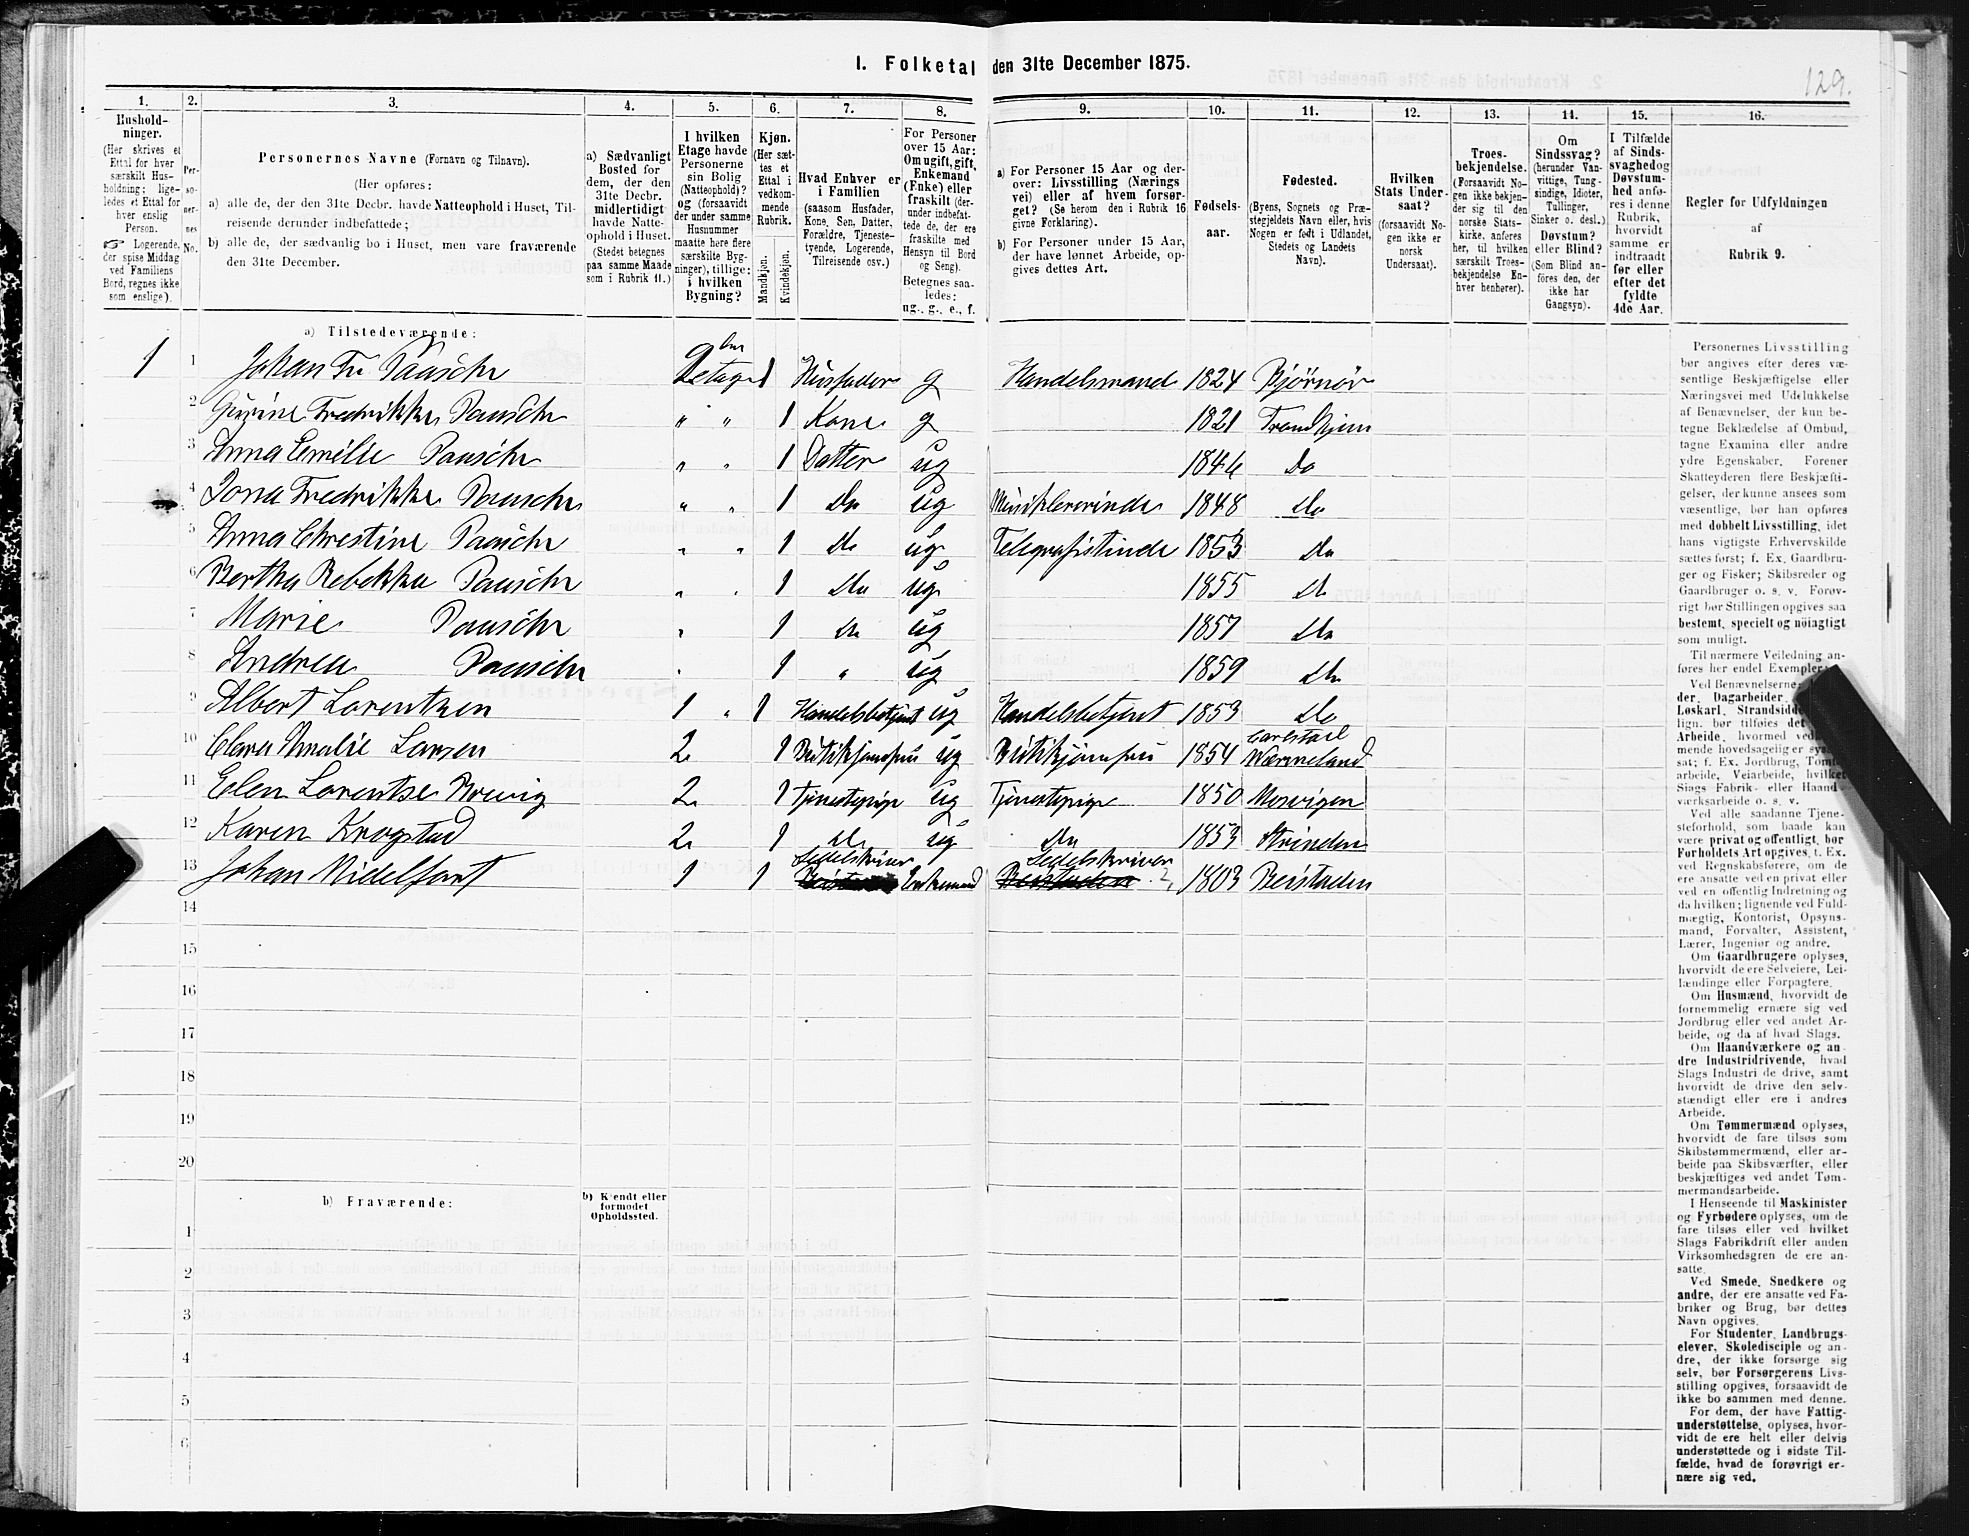 I. Folketal den 31te December 1875.
129.
1.
Hushold-
ninger.
(Her skrives et
Ettal for hver
særskilt Hus-
holdning; lige-
ledes et Ettal for
hver enslig
Person.
Logerende,
der spise Middag
ved Familiens
Bord, regnes ikke
som enslige).
2.
Per-
so-
ner-
nes
No.
3.
Personernes Navne (Fornavn og Tilnavn).
(Her opføres:
a) alle de, der den 31te Decbr. havde Natteophold i Huset, Til-
reisende derunder indbefattede;
b) alle de, der sædvanlig bo i Huset, men vare fraværende
den 31te December.
4.
a) Sædvanligt
Bosted for
dem, der den
31te Decbr.
midlertidigt
havde Natte-
ophold i Huset.
(Stedet betegnes
paa samme Maade
som i Rubrik 11.)
5.
I hvilken
Etage havde
Personerne
sin Bolig
(Natteophold)?
og (forsaavidt
der under samme
Husnummer
maatte høre flere
særskilte Byg-
ninger), tillige:
i hvilken
Bygning?
6.
Kjøn.
(Her sæt-
tes et
Ettal i
vedkom-
mende
Rubrik.
Mandkjøn.
Kvindekjøn.
7.
Hvad Enhver er
i Familien
(saasom Husfader,
Kone, Søn, Datter,
Forældre, Tjeneste-
tyende, Logerende,
Tilreisende osv.)
8.
For Personer
over 15 Aar:
Om ugift, gift,
Enkemand
(Enke) eller
fraskilt (der-
under indbefat-
tede de, der ere
fraskilte med
Hensyn til Bord
og Seng).
Betegnes saa-
ledes:
ug., g., e., f.
9.
a) For Personer 15 Aar og der-
over: Livsstilling (Nærings
vei) eller af hvem forsør-
get? (Se herom den i Rubrik 16
givne Forklaring).
b) For Personer under 15 Aar,
der have lønnet Arbeide, op-
gives dettes Art.
10.
Fødsels-
aar.
11.
Fødested.
(Byens, Sognets og Præ-
stegjeldets Navn eller, hvis
Nogen er født i Udlandet,
Stedets og Landets
Navn).
12.
Hvilken
Stats Under-
saat?
(forsaavidt No-
gen ikke er
norsk
Undersaat).
13.
Troes-
bekjendelse.
(Forsaavidt No-
gen ikke bekjen-
der sig til den
norske Stats-
kirke, anføres
her, til hvilken
særskilt Troes-
bekjendelse En-
hver henhører).
14.
Om
Sindssvag?
(herunder Van-
vittige, Tung-
sindige, Idioter,
Tullinger,
Sinker o. desl.)
Døvstum?
eller Blind?
(Som Blind an-
føres den, der
ikke har
Gangsyn).
15.
I Tilfælde
af Sinds-
svaghed og
Døvstum-
hed anfø-
res i denne
Rubrik,
hvorvidt
samme er
indtraadt
før eller
efter det
fyldte
4de Aar.
16.
Regler for Udfyldningen
af
Rubrik 9.
a) Tilstedeværende:
1 1 Johan Fr Paasche etage 1 Husfader g Handelsmand 1824 Bjørnør
2 Gurine Fredrikke Paasche " " 1 Kone g 1821 Trondhjem
3 Anna Emilie Paasche " " 1 Datter ug 1846 Do
4 Dona Fredrikke Paasche " " 1 Do ug Musiklererinde 1848 Do
5 Anna Christine Paasche " " 1 Do ug Telegrafistinde 1853 Do
6 Bertha Rebekka Paasche " " 1 Do ug 1855 Do
7 Marie Paasche " 1 Do ug 1857 Do
8 Andrea Paasche " 1 " ug 1859 Do
9 Albert Lorentzen 1 " 1 Handelsbetjent ug Handelsbetjent 1853 Do
10 Clara Amalie Larsen 2 1 Butikjomfru ug Butikjomfru 1854 Carlstad Wærmeland
11 Elen Lorentse Brevig 2 1 Tjenestepige ug Tjenestepige 1850 Mosvigen
12 Karen Krogstad 2 1 Do ug Do 1853 Strinden
13 Johan Midelfart 1 1 Sedelskriver Enkemand Sedelskriver 1803 Beistaden
14
15
16
17
18
19
20
b) Fraværende:
b) Kjendt eller
formodet
Opholdssted.
1
2
3
4
5
6
Personernes Livsstilling
bør angives efter deres væ-
sentlige Beskjæftigelse eller
Næringsvei med Udelukkelse
af Benævnelser, der kun be-
tegne Beklædelse af Ombud,
tagne Examina eller andre
ydre Egenskaber. Forener
Skatteyderen flere Beskjæfti-
gelser, der kunne ansees som
væsentlige, bør han opføres
med dobbelt Livsstilling, idet
hans vigtigste Erhvervskilde
sættes først; f. Ex. Gaardbru-
ger og Fisker; Skibsreder og
Gaardbruger o. s. v. Forøv-
rigt bør Stillingen opgives saa
bestemt, specielt og nöiagtigt
som muligt.
Til nærmere Veiledning an-
føres her endel Exempler:
Ved Benævnelserne,
der, Dagarbeider,
Løskarl, Strandsidde
lign. bør tilføies det
Arbeide, hvormed ved
mende hovedsagelig er sys
sat; f. Ex. Jordbrug, Tømte
arbeide, Veiarbeide, hvilket
Slags Fabrik- eller Haand-
værksarbeide o. s. v.
Ved alle saadanne Tjene-
steforhold, som baade kan
være privat og offentligt, bør
Forholdets Art opgives, f. Ex.
ved Regnskabsførere, om de
ere ansatte ved en privat eller
ved en offentlig Indretning og
da hvilken; lignende ved Fuld-
mægtig, Kontorist, Opsyns-
mand, Forvalter, Assistent,
Lærer, Ingeniør og andre.
Om Gaardbrugere oplyses,
hvorvidt de ere Selveiere, Lei-
lændinge eller Forpagtere.
Om Husmænd, hvorvidt de
fornemmelig ernære sig ved
Jordbrug eller ved andet Ar-
beide, og da af hvad Slags.
Om Haandværkere og an-
dre Industridrivende, hvad
Slags Industri de drive, samt
hvorvidt de drive den selv-
stændigt eller ere i andres
Arbeide.
Om Tømmermænd oplyses,
hvorvidt de fare tilsøs som
Skibstømmermænd, eller ar-
beide paa Skibsværfter, eller
beskjæftiges ved andet Tøm-
mermandsarbeide.
I Henseende til Maskinister
og Fyrbødere oplyses, om de
fare tilsøs eller ved hvilket
Slags Fabrikdrift eller anden
Virksomhedsgren de ere an-
satte.
Ved Smede, Snedkere og
andre, der ere ansatte ved Fa-
briker og Brug, bør dettes
Navn opgives.
For Studenter, Landbrugs-
elever, Skoledisciple og an-
dre, der ikke forsørge sig
selv, bør Forsørgerens Livs-
stilling opgives, forsaavidt de
ikke bo sammen med denne.
For dem, der have Fattig-
understøttelse, oplyses, hvor-
vidt de ere helt eller delvis
understøttede og i sidste Til-
fælde, hvad de forøvrigt er-
nære sig ved.